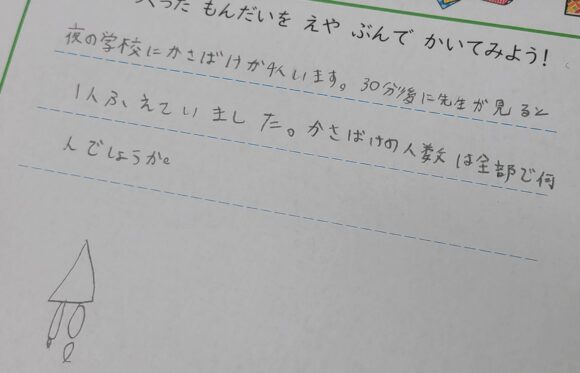 った もんだいを えや ぶんで かいてみよう!
夜の学校にかさばけが4人います。30分後に先生が見ると
1人ふえていました。かさばけの人数は全部で何
人でしょうか。